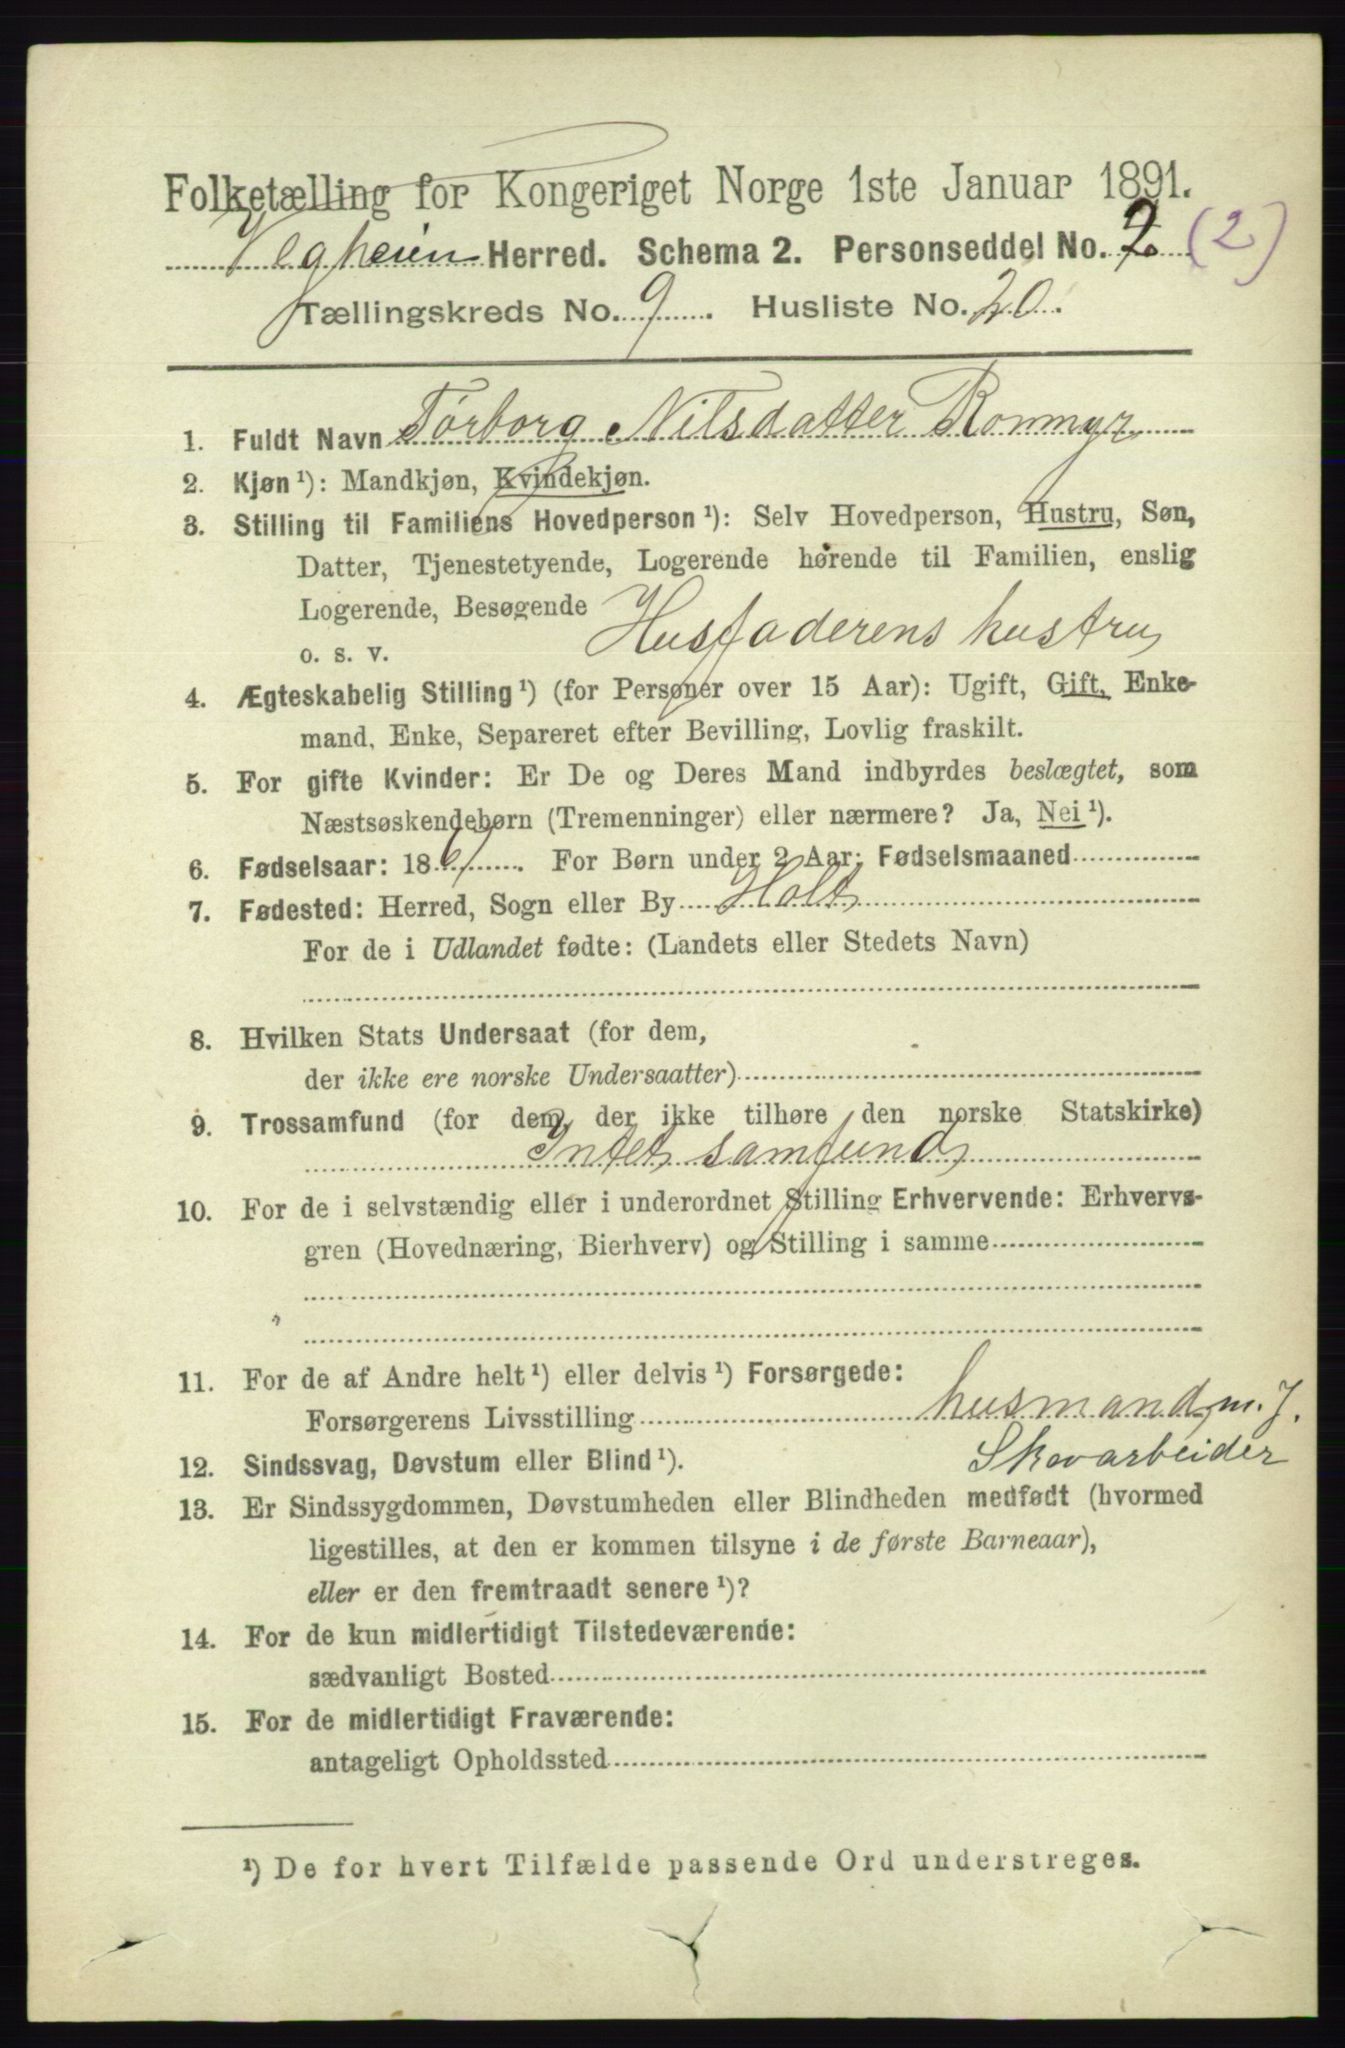 Folketælling for Kongeriget Norge 1ste Januar 1891.
Vegheien Herred. Schema 2. Personseddel No. 2 (2)
Tællingskreds No. 9. Husliste No. 20.
1. Fuldt Navn Tørborg Nilsdatter Ronmyr
2. Kjøn ¹): Mandkjøn, Kvindekjøn.
3. Stilling til Familiens Hovedperson ¹): Selv Hovedperson, Hustru, Søn,
Datter, Tjenestetyende, Logerende hørende til Familien, enslig
Logerende, Besøgende
o. s. v. Husfaderens hustru
4. Ægteskabelig Stilling ¹) (for Personer over 15 Aar): Ugift, Gift, Enke-
mand, Enke, Separeret efter Bevilling, Lovlig fraskilt.
5. For gifte Kvinder: Er De og Deres Mand indbyrdes beslægtet, som
Næstsøskendebørn (Tremenninger) eller nærmere? Ja, Nei ¹).
6. Fødselsaar: 1861. For Børn under 2 Aar: Fødselsmaaned
7. Fødested: Herred, Sogn eller By Holt
For de i Udlandet fødte: (Landets eller Stedets Navn)
8. Hvilken Stats Undersaat (for dem,
der ikke ere norske Undersaatter)
9. Trossamfund (for dem, der ikke tilhøre den norske Statskirke)
Intet samfund
10. For de i selvstændig eller i underordnet Stilling Erhvervende: Erhvervs-
gren (Hovednæring, Bierhverv) og Stilling i samme
11. For de af Andre helt ¹) eller delvis ¹) Forsørgede:
Forsørgerens Livsstilling husmand m. J.
Skovarbeider
12. Sindssvag, Døvstum eller Blind ¹).
13. Er Sindssygdommen, Døvstumheden eller Blindheden medfødt (hvormed
ligestilles, at den er kommen tilsyne i de første Barneaar),
eller er den fremtraadt senere ¹)?
14. For de kun midlertidigt Tilstedeværende:
sædvanligt Bosted
15. For de midlertidigt Fraværende:
antageligt Opholdssted
¹) De for hvert Tilfælde passende Ord understreges.